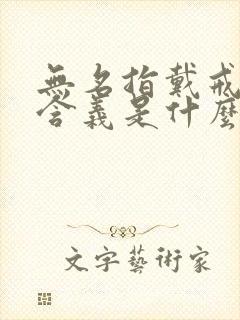 無名指戴戒
含義是什麼
文字藝術家